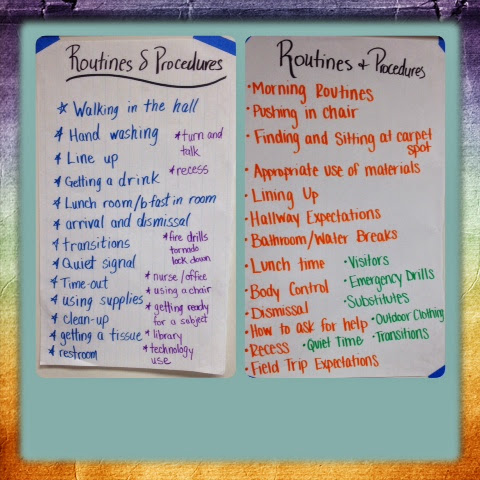 Routines & Procedures
☆ Walking in the hall
* Hand washing
* Line up
* Getting a drink
* Lunch room/bfast in room
* arrival and dismissal
* transitions
* Quiet signal
* Time-out
* using supplies
* clean-up
* getting a tissue
* restroom
* turn and
talk
* recess
* fire drills
tornado
lock down
* nurse/office
* using a chair
* getting ready
for a subject
* library
* technology
use
Routines + Procedures
• Morning Routines
• Pushing in chair
• Finding and Sitting at carpet
spot
• Appropriate use of materials
• Lining Up
• Hallway Expectations
• Bathroom/Water Breaks
• Lunch time
• Body Control
• Dismissal
• How to ask for help
• Recess
• Field Trip Expectations
• Visitors
• Emergency Drills
• Substitutes
• Outdoor Clothing
• Quiet Time
• Transitions